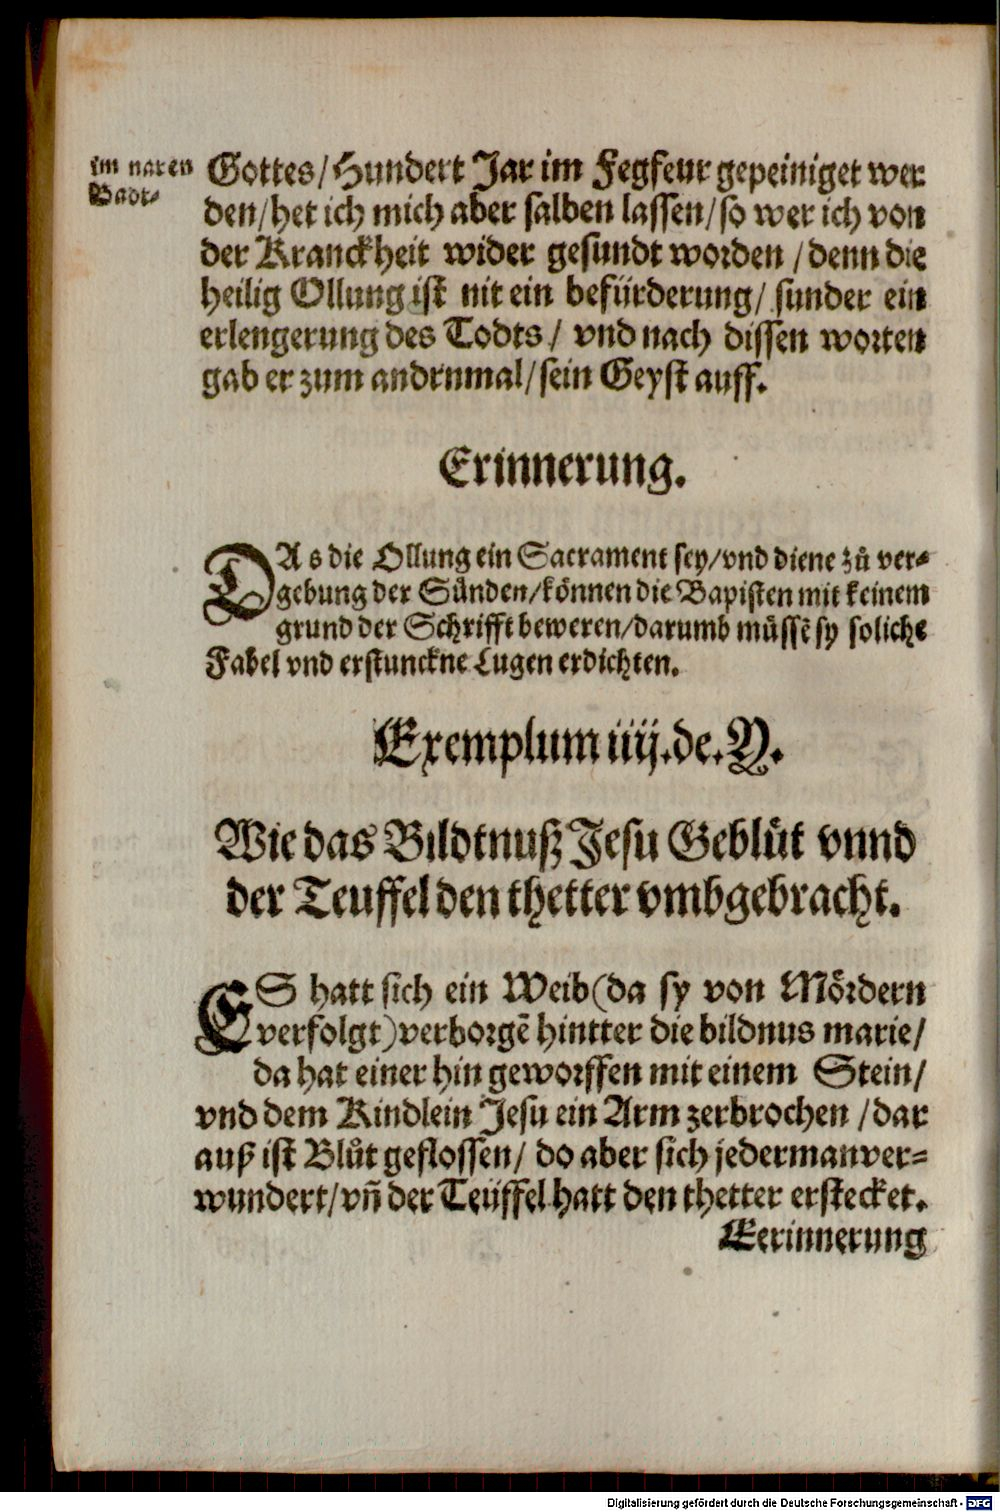 im naren
Badt-
Gottes/Hundert Jar im Fegfeur gepeiniget wer
den/het ich mich aber salben lassen/so wer ich von
der Kranckheit wider gesundt worden /denn die
heilig Ollung ist nit ein befürderung/ sunder ein
erlengerung des Todts/ vnd nach dissen worten
gab er zum andrnmal/sein Geyst auff.
Erinnerung.
DAs die Ollung ein Sacrament sey/vnd diene zů ver-
gebung der Sünden/können die Bapisten mit keinem
grund der Schrifft beweren/darumb müssẽ sy soliche
Fabel vnd erstunckne Lugen erdichten.
Exemplum iiij.de.Y.
Wie das Bildtnuß Jesu Geblüt vnnd
der Teuffel den thetter vmbgebracht.
ES hatt sich ein Weib(da sy von Mördern
verfolgt)verborgẽ hintter die bildnus marie/
da hat einer hin geworffen mit einem Stein/
vnd dem Kindlein Jesu ein Arm zerbrochen /dar
auß ist Blůt geflossen/ do aber sich jedermanver-
wundert/vñ der Teüffel hatt den thetter erstecket.
Eerinnerung
Digitalisierung gefördert durch die Deutsche Forschungsgemeinschaft - DFG